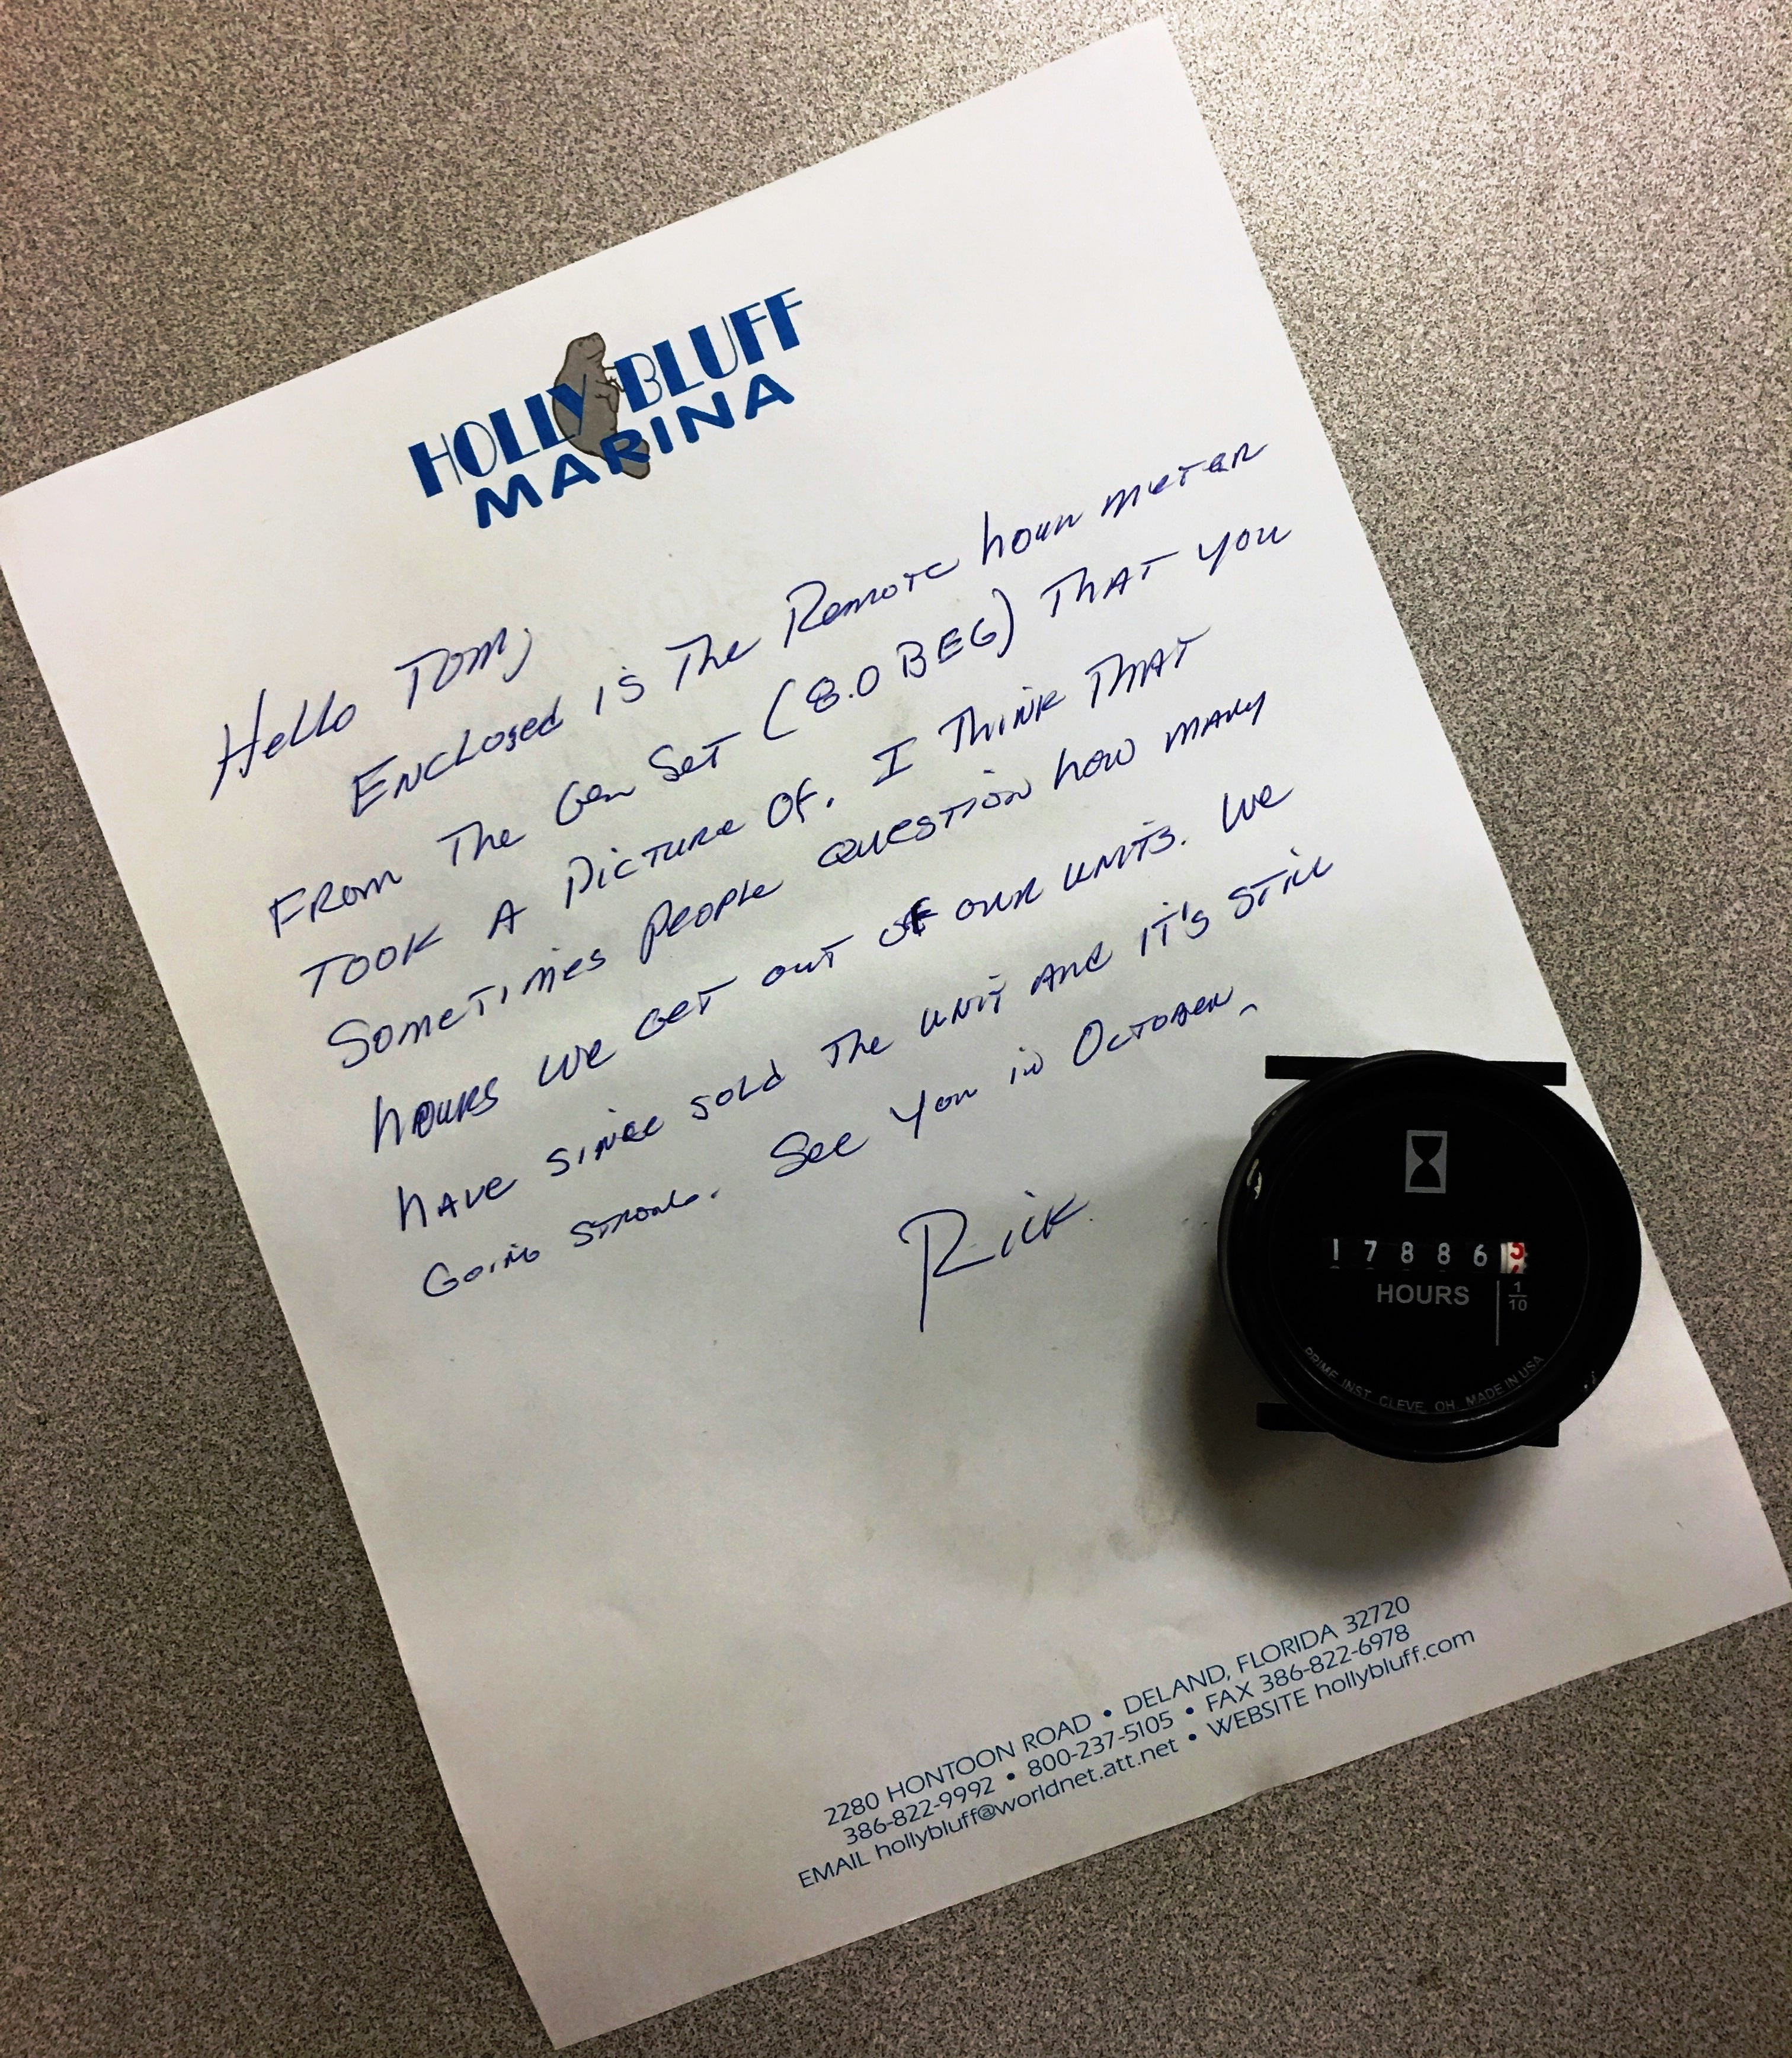 HOLLY BLUFF
MARINA
Hello Tom,
Enclosed is The Remote hour meter
From The Gen Set (8.0 BEG) That you
Took A Picture Of. I Think That
Sometimes People question how many
hours we get out of our units. We
have since sold The unit and it's still
Going strong. See you in October.
Rick
17886 5
HOURS 1/10
PRIME INST. CLEVE. OH. MADE IN USA
2280 HONTOON ROAD • DELAND, FLORIDA 32720
386-822-9992 • 800-237-5105 • FAX 386-822-6978
EMAIL hollybluff@worldnet.att.net • WEBSITE hollybluff.com